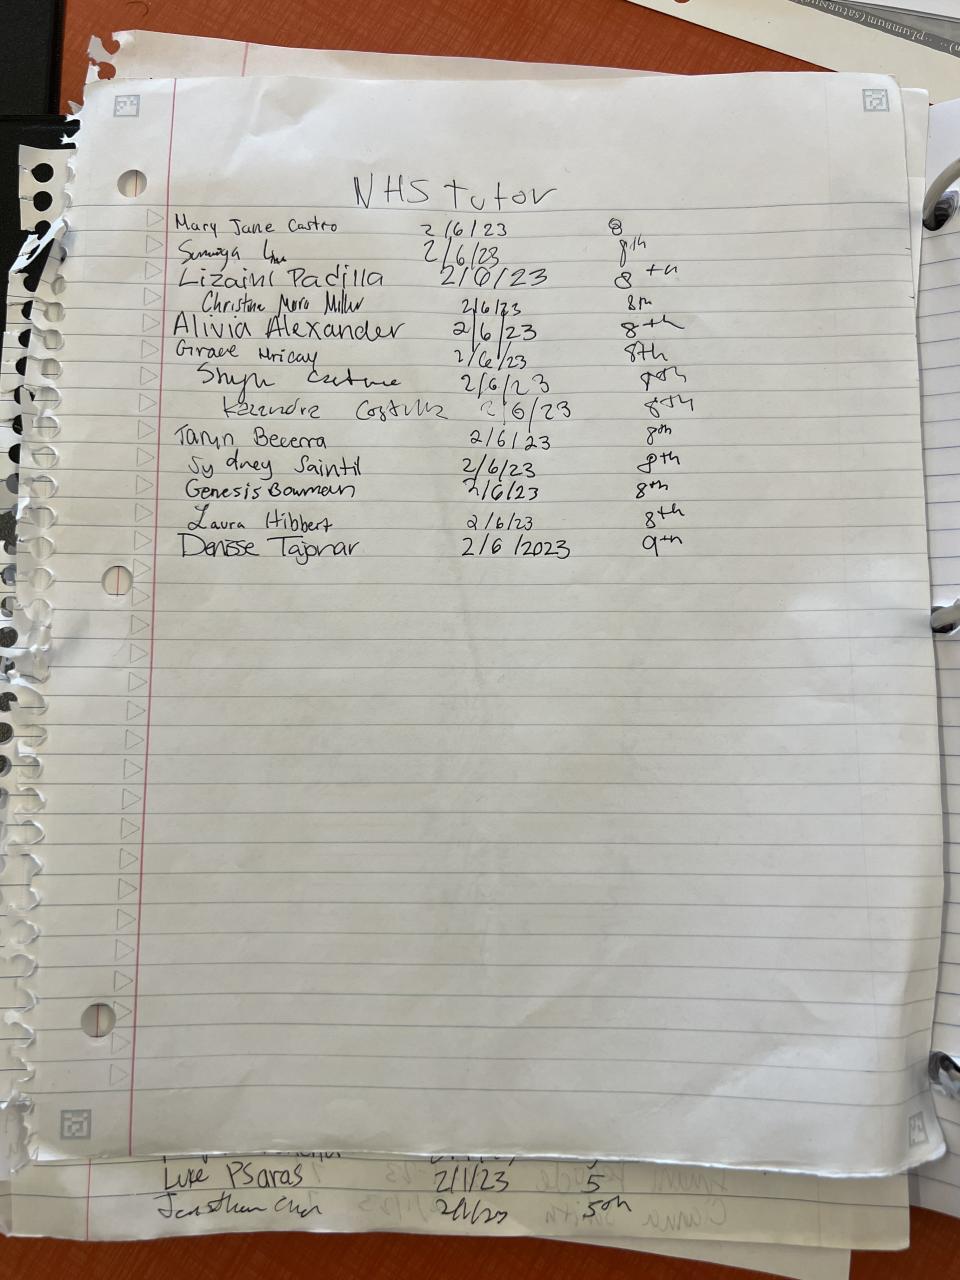 plumbum (saturnus)
NHS Tutor
Mary Jane Castro 2/6/23 8
2/6/23 8th
Lizaini Padilla 2/6/23 8th
Christine Mora Miller 2/6/23 8th
Alivia Alexander 2/6/23 8th
Grace 2/6/23 8th
2/6/23 8th
2/6/23 8th
Taryn Becerra 2/6/23 8th
Sydney Saintil 2/6/23 8th
Genesis Bowman 2/6/23 8th
Laura Hibbert 2/6/23 8th
Denisse Tajonar 2/6/2023 9th
Luke Psaras 2/1/23 5
2/1/23 5th